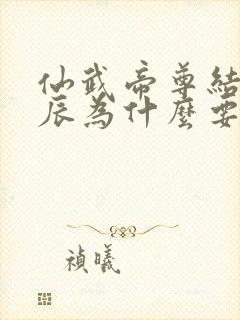 仙武帝尊結
辰為什麼要
禎曦